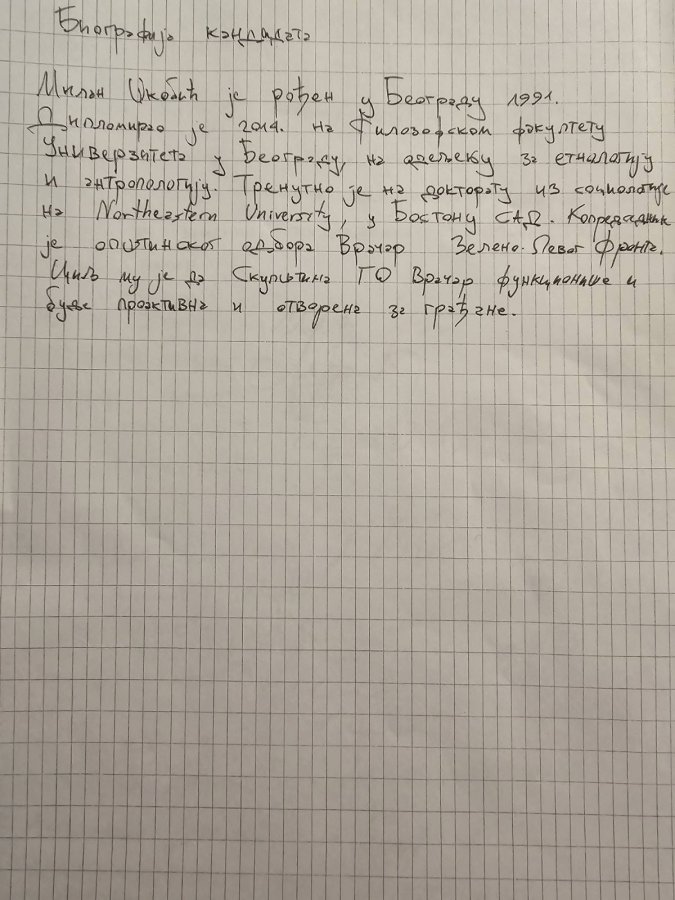 Биографија кандидата
Милан Шкобић је рођен у Београду 1991.
Дипломирао је 2014. на Филозофском факултету
Универзитета у Београду, на одељеку за етналогију
и антропологију. Тренутно је на докторату из социологије
на Northeastern University, у Бостону САД. Копредседник
је општинског одбора Врачар Зелено-Левог Фронта.
Циљ му је да Скупштина ГО Врачар функционише и
буде проактивна и отворена за грађане.